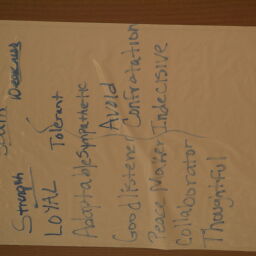 Strength Weakness
LOYAL Tolerant
Adaptable Sympathetic
Good listener Avoid Confrotation
Peace Maker Indecisive
Collaborator
Thoughtful